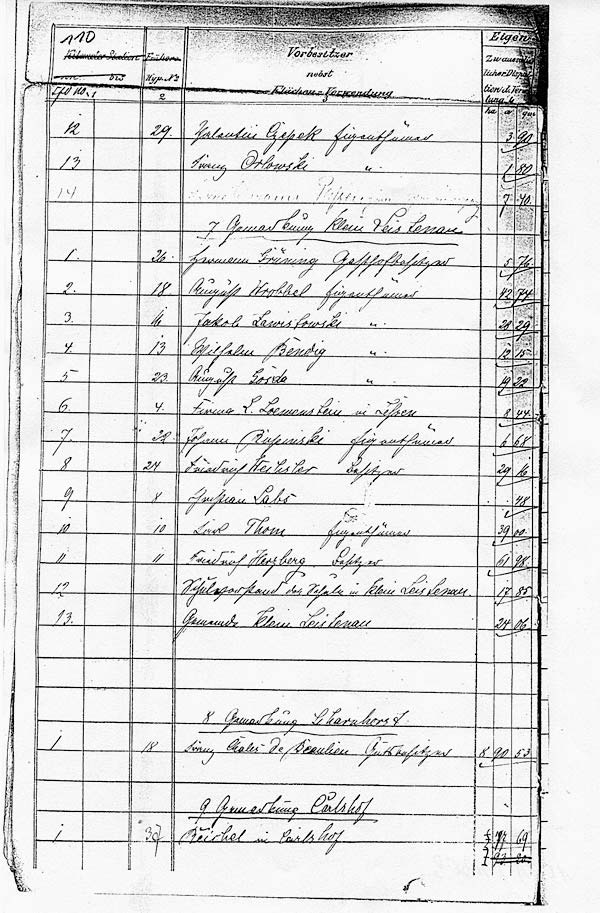 110
Früher
Vorbesitzer
Eigen
nebst
Hyp. №
Flächen-Verwendung
Lfd No. 1
2
ha a qm
12 29. Valentin Czepek Eigenthümer 3 90
13 Franz Orlowski " 1 80
14 7 40
7 Gemarkung Klein Leistenau
1. 26. Hermann Grüning Gasthofbesitzer 5 76
2. 18. August Wrobbel Eigenthümer 42 74
3. 16 Jakob Lewistowski " 28 29
4. 13 Wilhelm Bendig " 12 15
5 23. August Gorda " 19 22
6. 4. Firma L. Loewenstein in Lessen 8 44
7. 22 Johann Eigenthümer 6 68
8 24 Friedrich Besitzer 29 16
9 8 Christian Labs 48
10 10 Thom Eigenthümer 39 00
11 11 Friedrich Herzberg Besitzer 61 98
12 Schulvorstand der Schule in Klein Leistenau 17 85
13. Gemeinde Klein Leistenau 24 06
8 Gemarkung Scharnhorst
1 18 Franz de Beaulieu Gutsbesitzer 8 90 53
9 Gemarkung Carlshof
1 Reichel in Carlshof 69